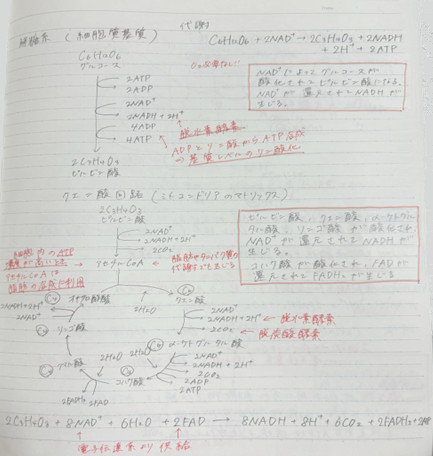 代謝
解糖系 (細胞質基質)
C₆H₁₂O₆ + 2NAD⁺ → 2C₃H₄O₃ + 2NADH
+ 2H⁺ + 2ATP
C₆H₁₂O₆
グルコース
2ATP
2ADP
2NAD⁺
2NADH + 2H⁺
4ADP
4ATP
脱水素酵素
ADPとリン酸からATP合成
→ 基質レベルのリン酸化
NAD⁺によってグルコースが
酸化されてピルビン酸になる。
NAD⁺が還元されてNADHが
生じる。
2C₃H₄O₃
ピルビン酸
クエン酸回路 (ミトコンドリアのマトリックス)
2C₃H₄O₃
ピルビン酸
2NAD⁺
2NADH + 2H⁺
2CO₂
アセチルCoA
脂肪やタンパク質の
代謝でも生じる
細胞内のATP
アセチルCoAは
脂肪の合成に利用
ピルビン酸、クエン酸、α-ケトグル
タル酸、リンゴ酸が酸化され、
NAD⁺が還元されNADHが
生じる。
コハク酸が酸化され、FADが
還元されてFADH₂が生じる
オキサロ酢酸
C₄
クエン酸
C₆
2NAD⁺
2NADH + 2H⁺
リンゴ酸
C₄
2NAD⁺
2NADH + 2H⁺ ← 脱水素酵素
2CO₂ ← 脱炭酸酵素
2H₂O
2H₂O
α-ケトグルタル酸
C₅
フマル酸
C₄
コハク酸
C₄
2FADH₂
2FAD
2NAD⁺
2NADH + 2H⁺
2CO₂
2ADP
2ATP
2C₃H₄O₃ + 8NAD⁺ + 6H₂O + 2FAD → 8NADH + 8H⁺ + 6CO₂ + 2FADH₂ + 2ATP
電子伝達系より供給